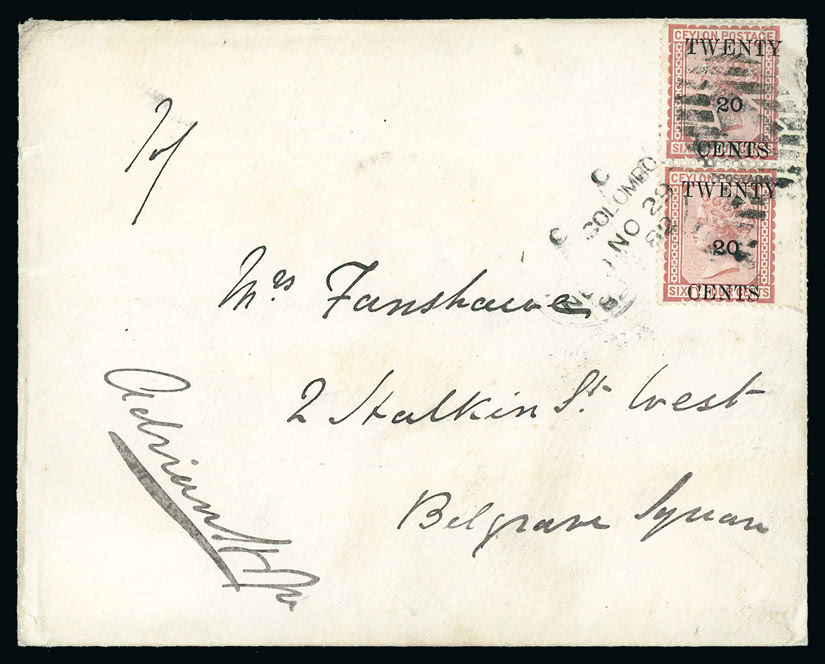 CEYLON POSTAGE
TWENTY
20
CENTS
CEYLON POSTAGE
TWENTY
20
CENTS
COLOMBO
NO 29
82
Mrs Fanshawe
2 Halkin St. West
Belgrave Square
Adrian Hope